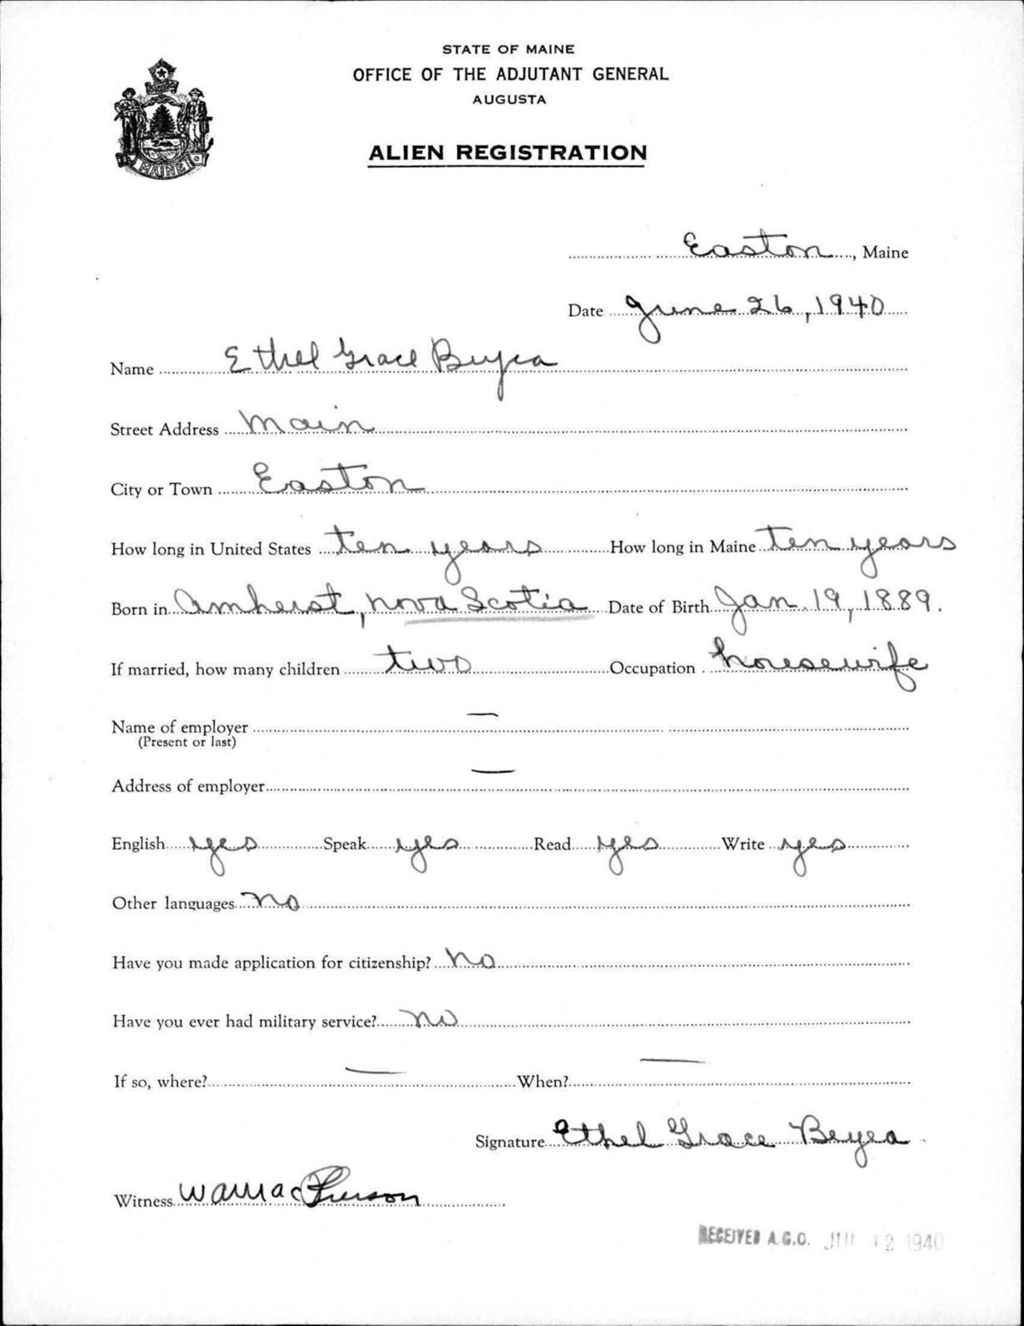 STATE OF MAINE
OFFICE OF THE ADJUTANT GENERAL
AUGUSTA
ALIEN REGISTRATION
MAINE
Easton, Maine
Date June 26, 1940
Name Ethel Grace Beyea
Street Address Main
City or Town Easton
How long in United States ten years How long in Maine ten years
Born in Amherst, Nova Scotia Date of Birth Jan. 19, 1889.
If married, how many children two Occupation housewife
Name of employer —
(Present or last)
Address of employer —
English yes Speak yes Read yes Write yes
Other languages no
Have you made application for citizenship? No
Have you ever had military service? no
If so, where? — When? —
Signature Ethel Grace Beyea
Witness
RECEIVED A.G.O. 1940